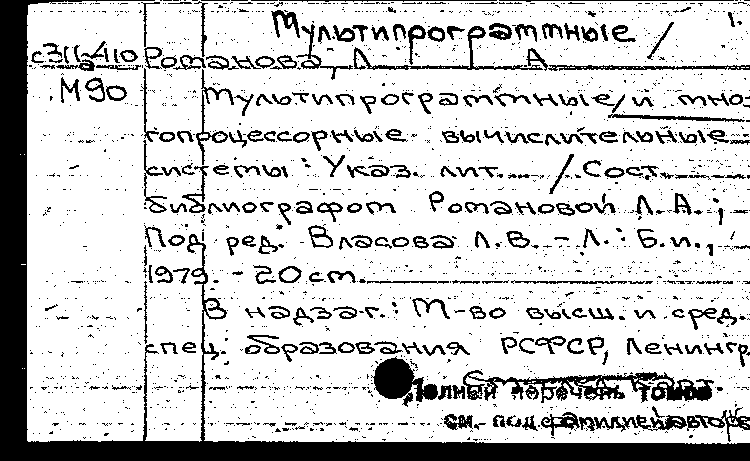 Мультипрограммные / 1.
с311-410 Романова, Л. Г. А
М90 Мультипрограммные / и мно-
гопроцессорные вычислительные
системы: Указ. лит. / Сост.
библиографом Романовой Л. А.;
Под ред. Власова Л.В. - Л.: Б.и.,
1979. - 20 см.
В надзаг.: М-во высш. и сред.
спец. образования РСФСР, Ленингр
Полный перечень томов
см. под фамилией автора